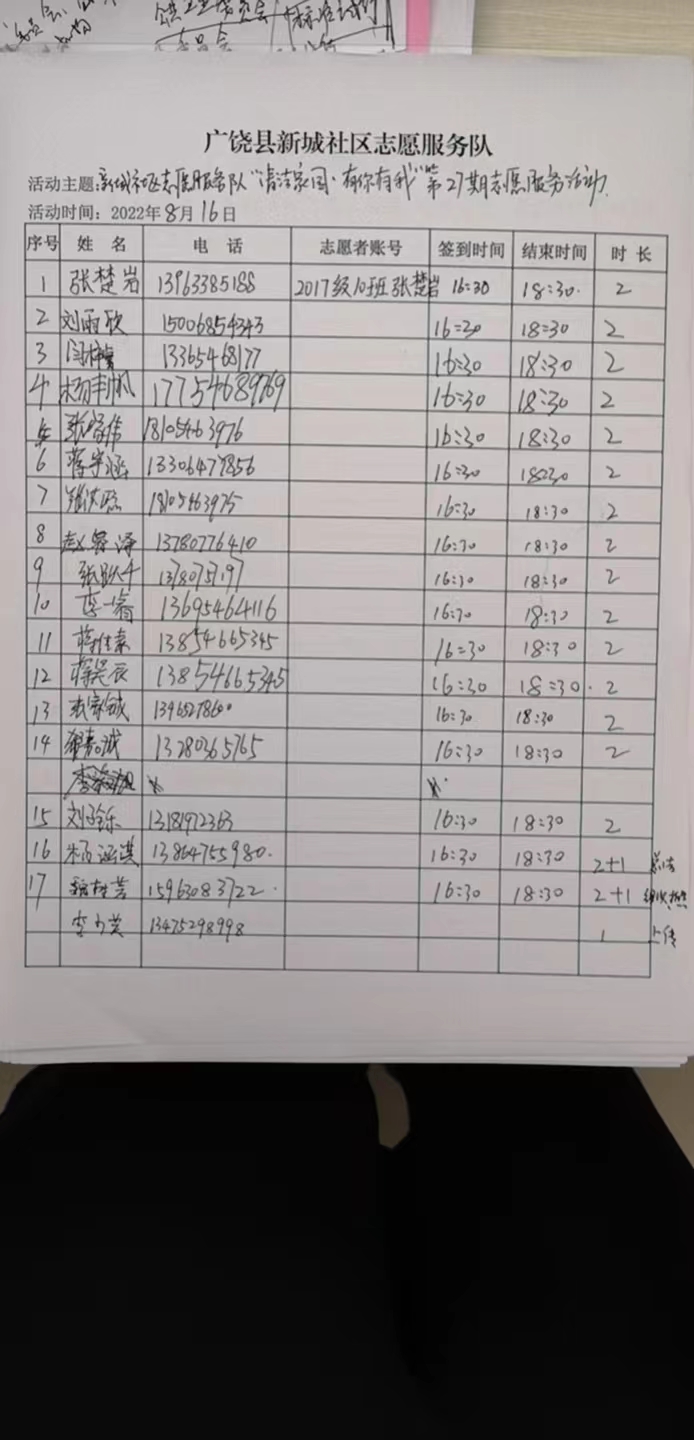 广饶县新城社区志愿服务队
活动主题:新城社区志愿服务队"清洁家园·有你有我"第27期志愿服务活动
活动时间：2022年8月16日
序号 姓名 电话 志愿者账号 签到时间 结束时间 时长
1 张楚岩 13963385188 2017级10班张楚岩 16:30 18:30. 2
2 刘雨欣 15006854343 16:30 18:30 2
3 13365468177 16:30 18:30 2
4 杨丰帆 17754689769 16:30 18:30 2
18105463976 16:30 18:30 2
6 蒋宇涵 13306477856 16:30 18:30 2
7 18105463975 16:30 18:30 2
8 赵睿泽 13780776410 16:30 18:30 2
9 张 16:30 18:30 2
10 李一睿 13695464116 16:30 18:30 2
11 蒋佳素 13854665345 16:30 18:30 2
12 蒋昊辰 13854665345 16:30 18:30. 2
13 16:30 18:30 2
14 13280365765 16:30 18:30 2
15 刘子铄 13181972363 16:30 18:30 2
16 杨涵淇 13864755980. 16:30 18:30 2+1
17 15963083722. 16:30 18:30 2+1
13475298998 1 上传